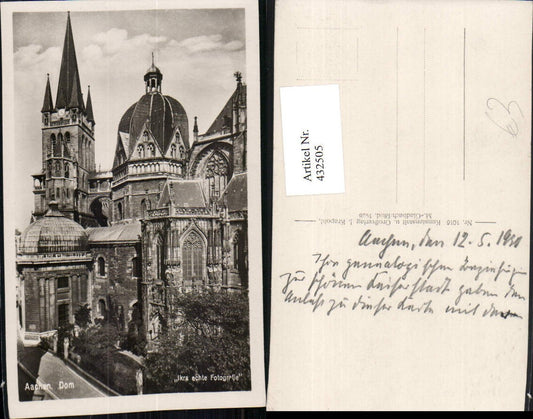 Aachen, Dom
„Ikra echte Fotografie"
Artikel Nr.
432505
63
Nr. 1016 Kunstanstalt u. Großverlag J. Krapohl,
M.-Gladbach-Rhld. 1438
Aachen, den 12. 5. 19
Ihre genealogischen
zu schönen Kaiserstadt gaben den
Anlaß zu dieser Karte mit